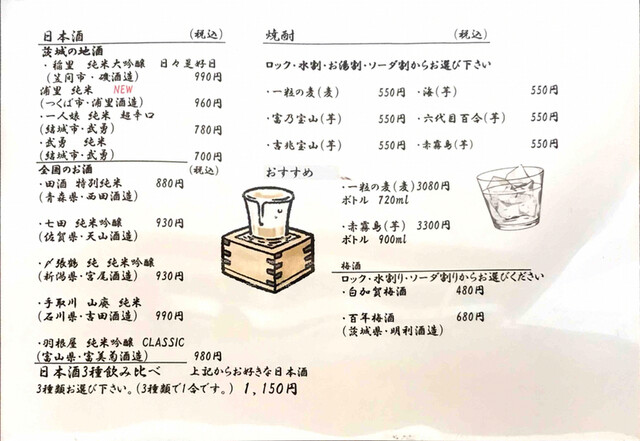 日本酒 (税込)
茨城の地酒
・稲里 純米大吟醸 日々是好日
(笠間市・磯酒造) 990円
浦里 純米 NEW
(つくば市・浦里酒造) 960円
・一人娘 純米 超辛口
(結城市・武勇) 780円
・武勇 純米
(結城市・武勇) 700円
全国のお酒 (税込)
・田酒 特別純米 880円
(青森県・西田酒造)
・七田 純米吟醸 930円
(佐賀県・天山酒造)
・〆張鶴 純 純米吟醸
(新潟県・宮尾酒造) 930円
・手取川 山廃 純米
(石川県・吉田酒造) 990円
・羽根屋 純米吟醸 CLASSIC
(富山県・富美菊酒造) 980円
日本酒3種飲み比べ 上記からお好きな日本酒
3種類お選び下さい。(3種類で1合です。) 1,150円
焼酎 (税込)
ロック・水割・お湯割・ソーダ割からお選び下さい
・一粒の麦(麦) 550円 ・海(芋) 550円
・富乃宝山(芋) 550円 ・六代目百合(芋) 550円
・吉兆宝山(芋) 550円 ・赤霧島(芋) 550円
おすすめ
・一粒の麦(麦) 3080円
ボトル 720ml
・赤霧島(芋) 3300円
ボトル 900ml
梅酒
ロック・水割り・ソーダ割りからお選びください
・白加賀梅酒 480円
・百年梅酒 680円
(茨城県・明利酒造)